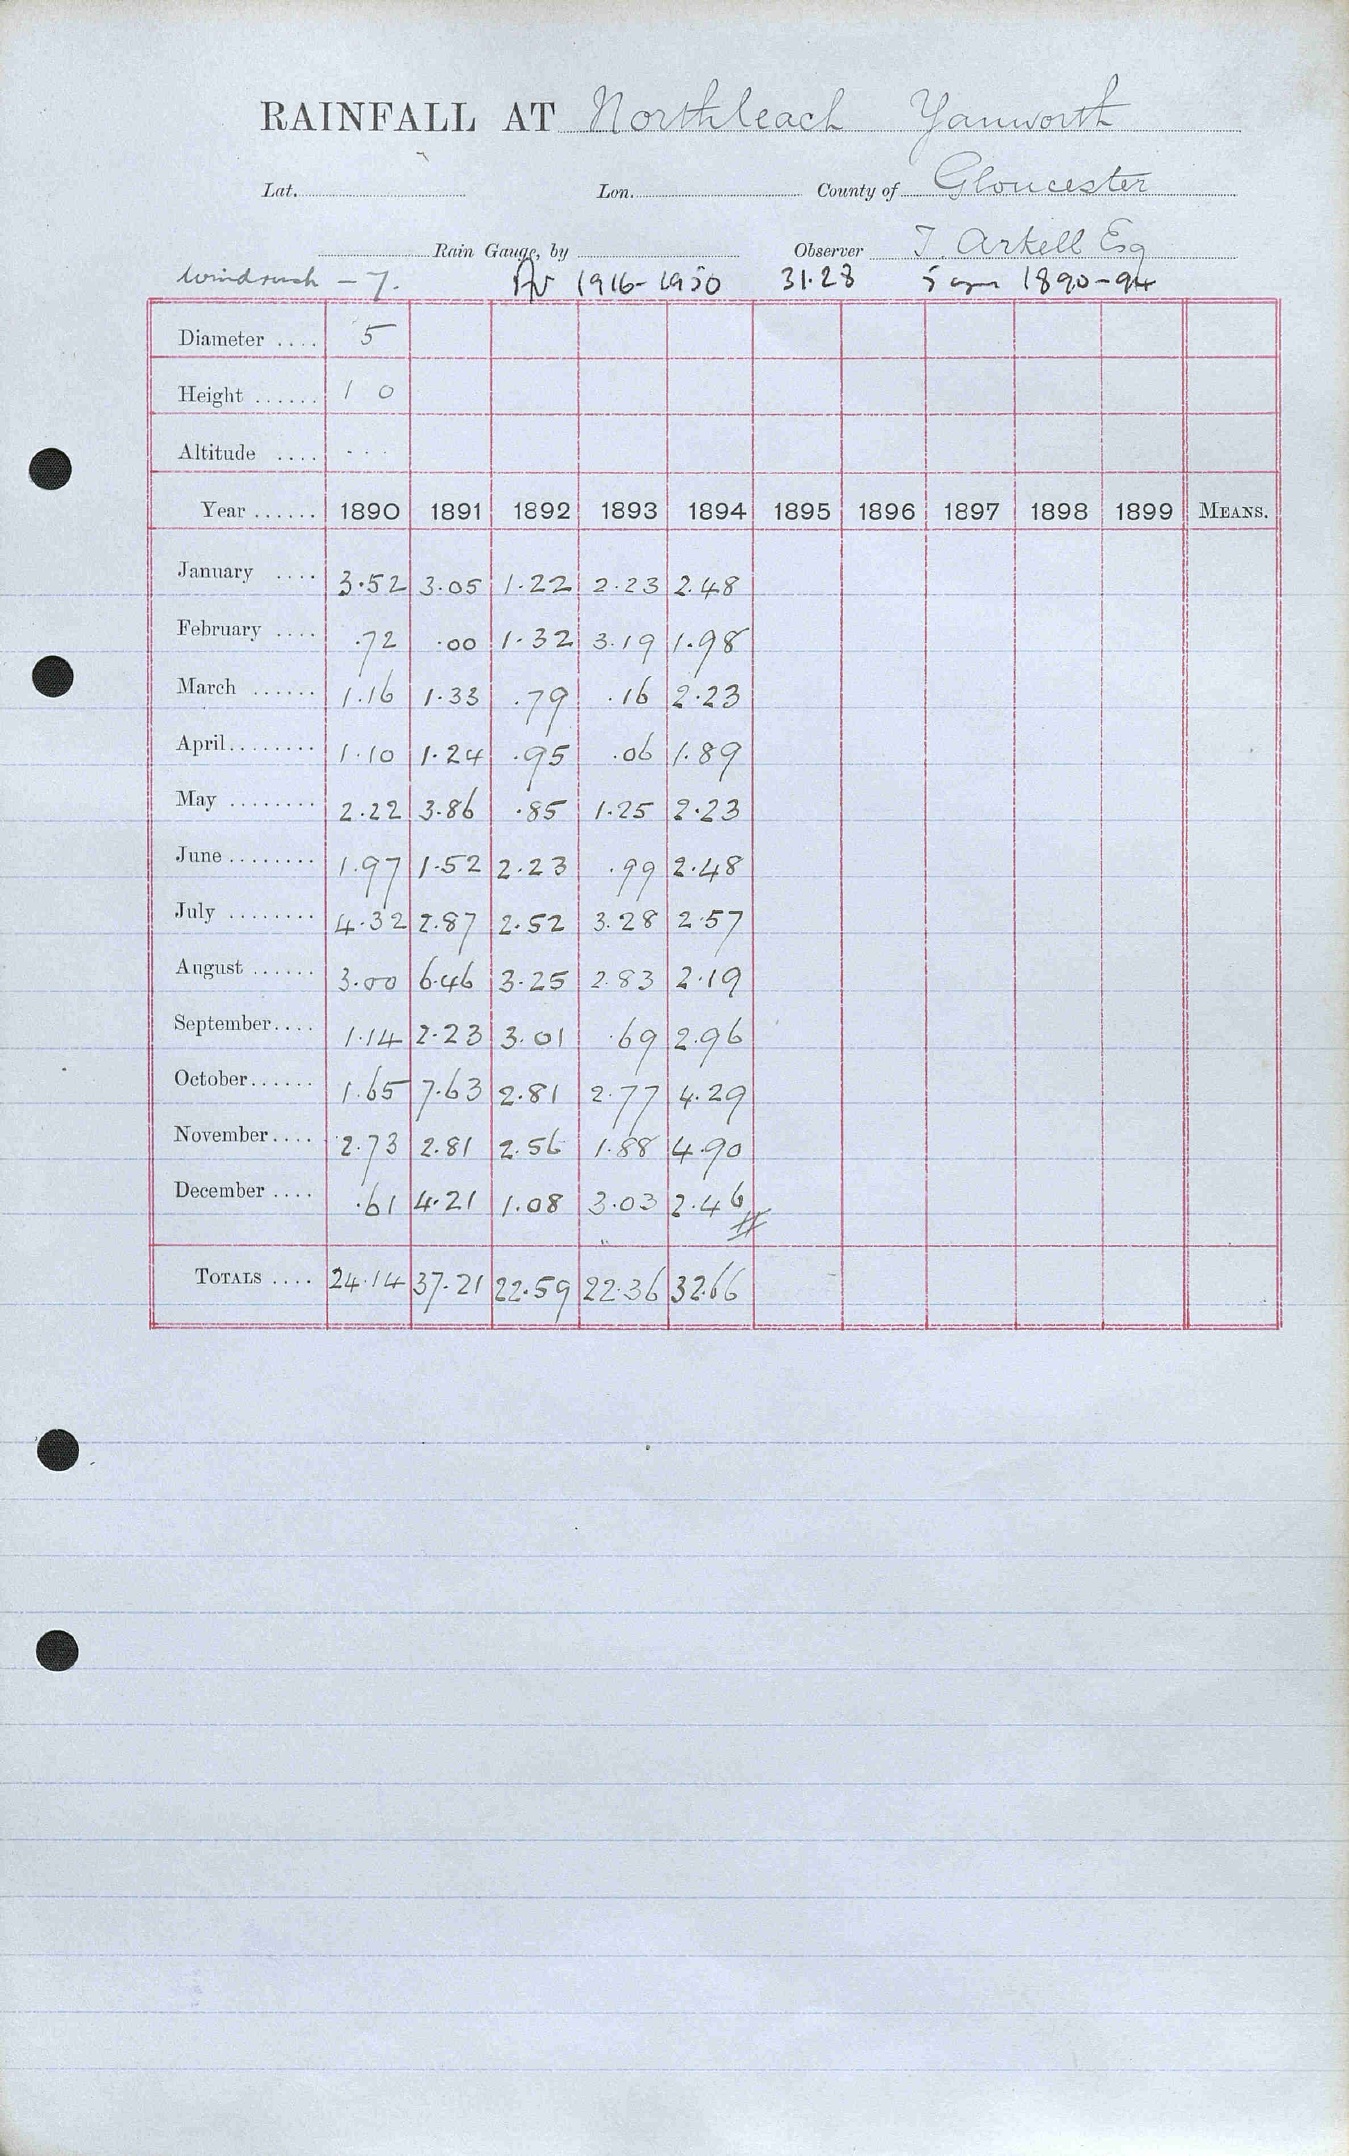 RAINFALL AT Northleach Yanworth
Lat. Lon. County of Gloucester
Rain Gauge, by Observer T. Arkell Esq
Windrush - 7. Av 1916-1950 31.28 5 1890-94
Diameter .... 5
Height ...... 1 0
Altitude .... ...
Year ...... 1890 1891 1892 1893 1894 1895 1896 1897 1898 1899 MEANS.
January .... 3.52 3.05 1.22 2.23 2.48
February .... .72 .00 1.32 3.19 1.98
March ...... 1.16 1.33 .79 .16 2.23
April........ 1.10 1.24 .95 .06 1.89
May ........ 2.22 3.86 .85 1.25 2.23
June ........ 1.97 1.52 2.23 .99 2.48
July ........ 4.32 2.87 2.52 3.28 2.57
August ...... 3.00 6.46 3.25 2.83 2.19
September.... 1.14 2.23 3.01 .69 2.96
October...... 1.65 7.63 2.81 2.77 4.29
November.... 2.73 2.81 2.56 1.88 4.90
December .... .61 4.21 1.08 3.03 2.46
TOTALS .... 24.14 37.21 22.59 22.36 32.66